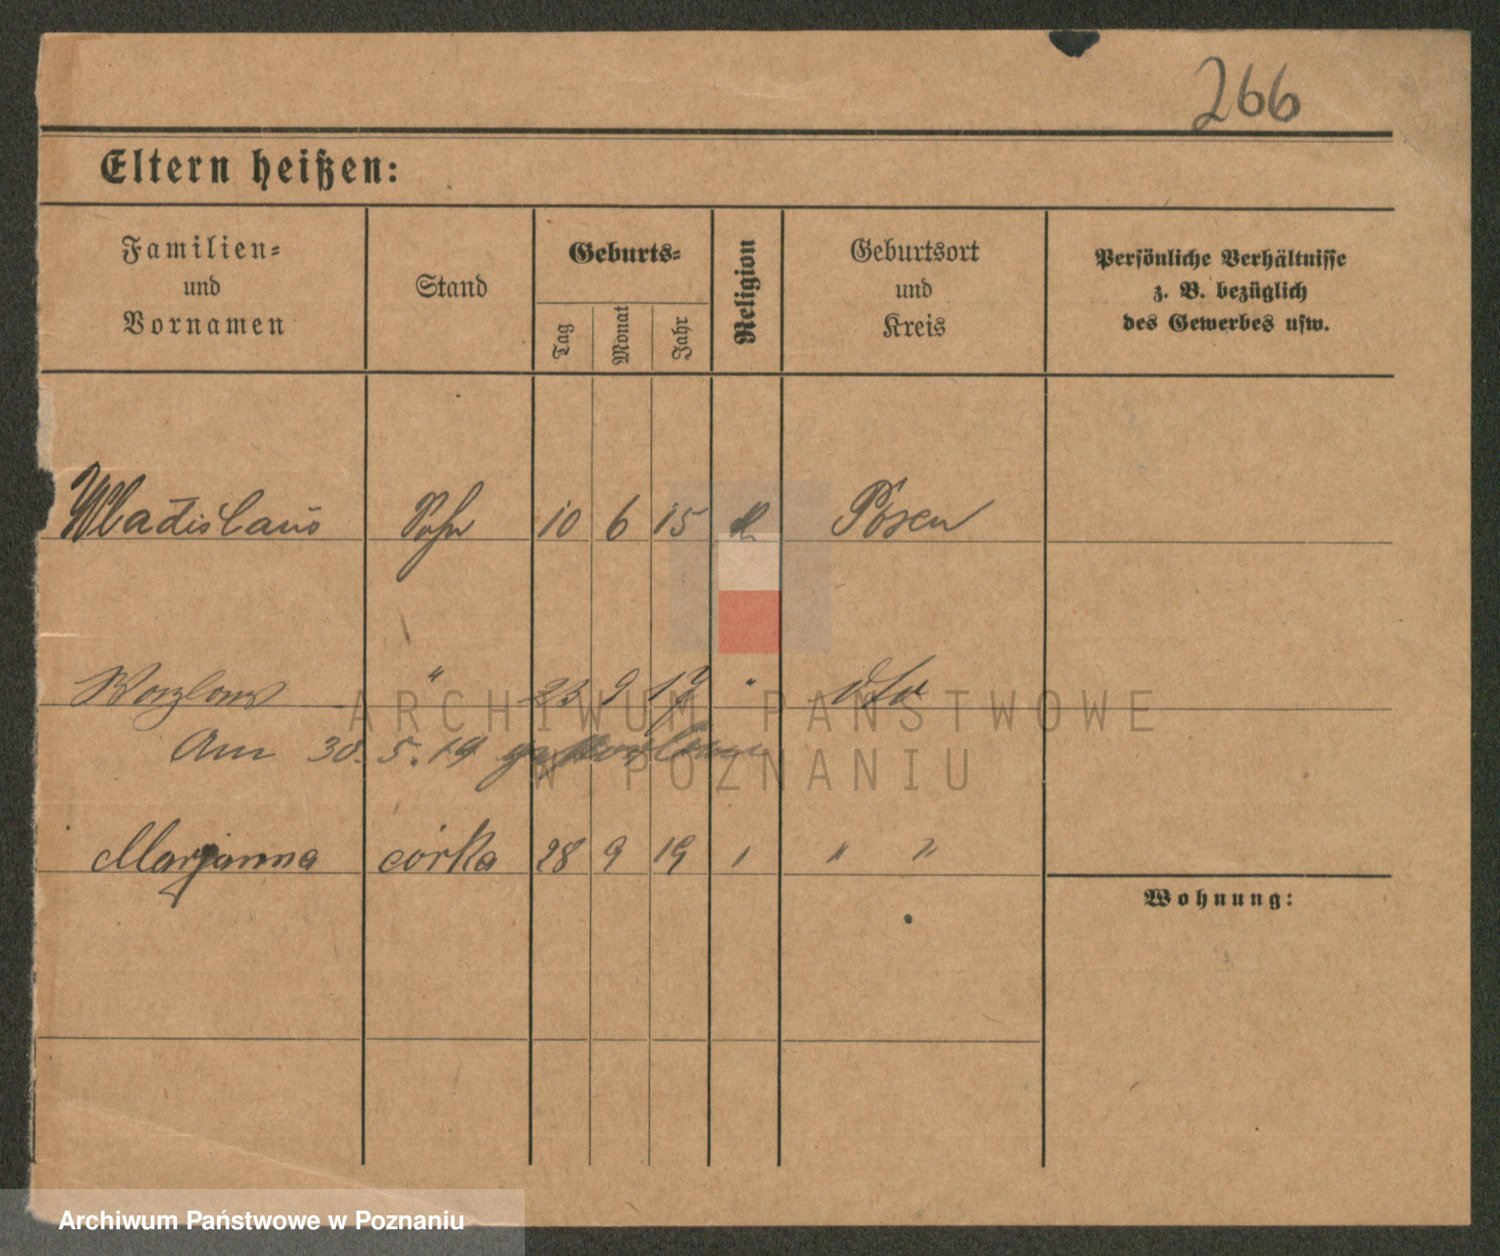 266
Eltern heißen:
Familien-
und
Vornamen
Stand
Geburts-
Tag
Monat
Jahr
Religion
Geburtsort
und
Kreis
Persönliche Verhältnisse
z. B. bezüglich
des Gewerbes usw.
Wladislaus Sohn 10 6 15 K Posen
" 23 9 17 " dto
Am 30. 5. 19
Marjanna córka 28 9 19 " " "
Wohnung:
ARCHIWUM PAŃSTWOWE
W POZNANIU
Archiwum Państwowe w Poznaniu